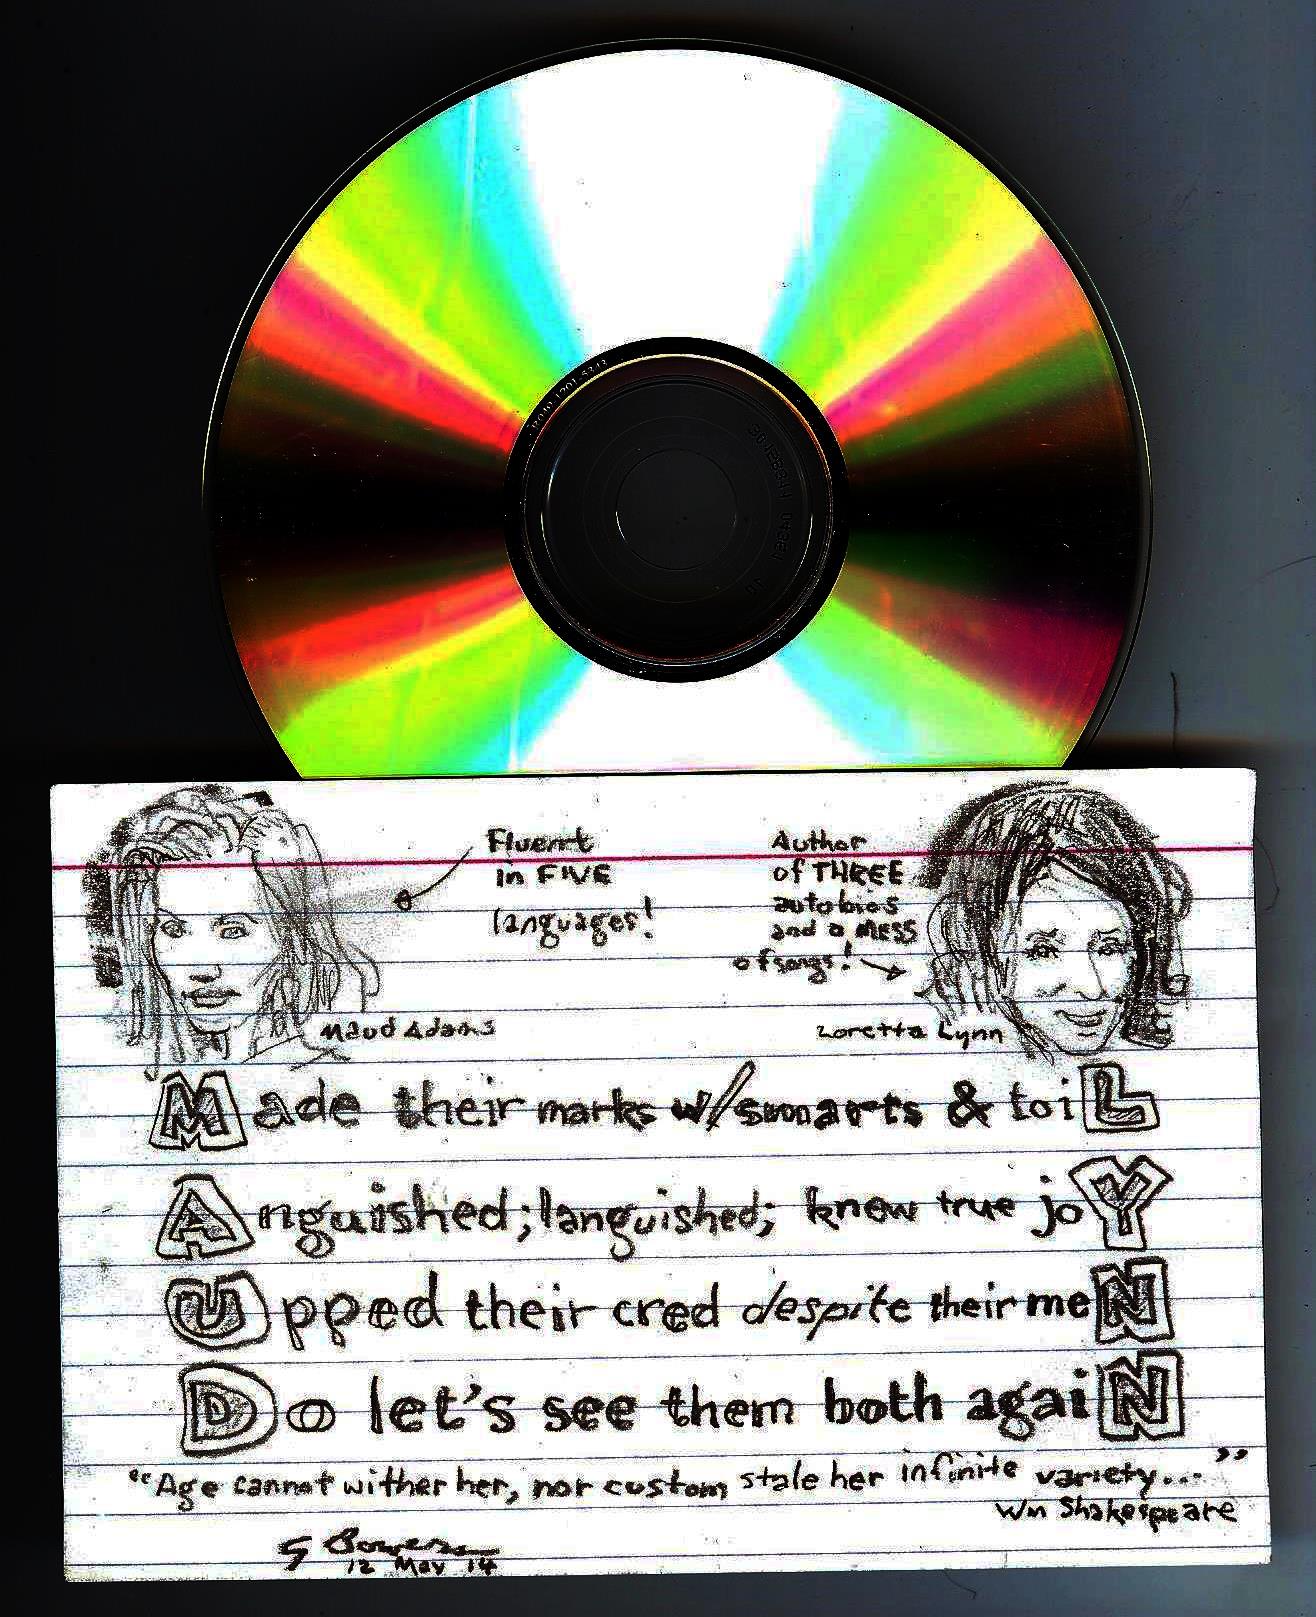 Fluent
in FIVE
languages!
Author
of THREE
autobios
and a MESS
of songs!
Maud Adams
Loretta Lynn
Made their marks w/smarts & toiL
Anguished; languished; knew true joY
Upped their cred despite their meN
Do let's see them both agaiN
"Age cannot wither her, nor custom stale her infinite variety..."
Wm Shakespeare
12 May 14